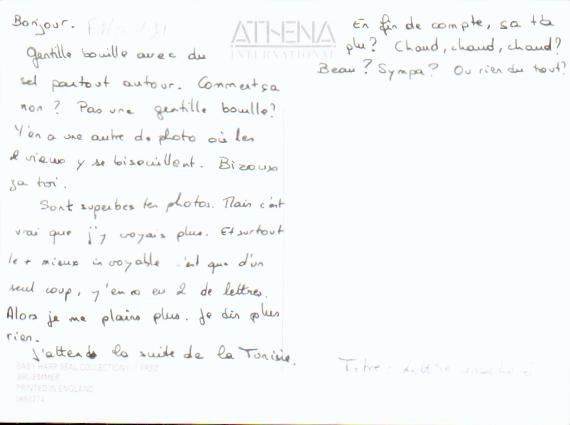 Bonjour.
Gentille bouille avec du
sel partout autour. Comment ça
non ? Pas une gentille bouille ?
Y'en a une autre de photo où les
2 vieux y se bisouillent. Bizoux
za toi.
Sont superbes tes photos. Mais c'est
vrai que j'y croyais plus. Et surtout
le + mieux incroyable c'est que d'un
seul coup, y'en a eu 2 de lettres.
Alors je me plains plus. Je dis plus
rien.
J'attends la suite de la Tunisie.
ATHENA
INTERNATIONAL
En fin de compte, sa t'a
plu ? Chaud, chaud, chaud ?
Beau ? Sympa ? Ou rien du tout ?
BABY HARP SEAL COLLECTION
BRUEMMER
PRINTED IN ENGLAND
Titre :